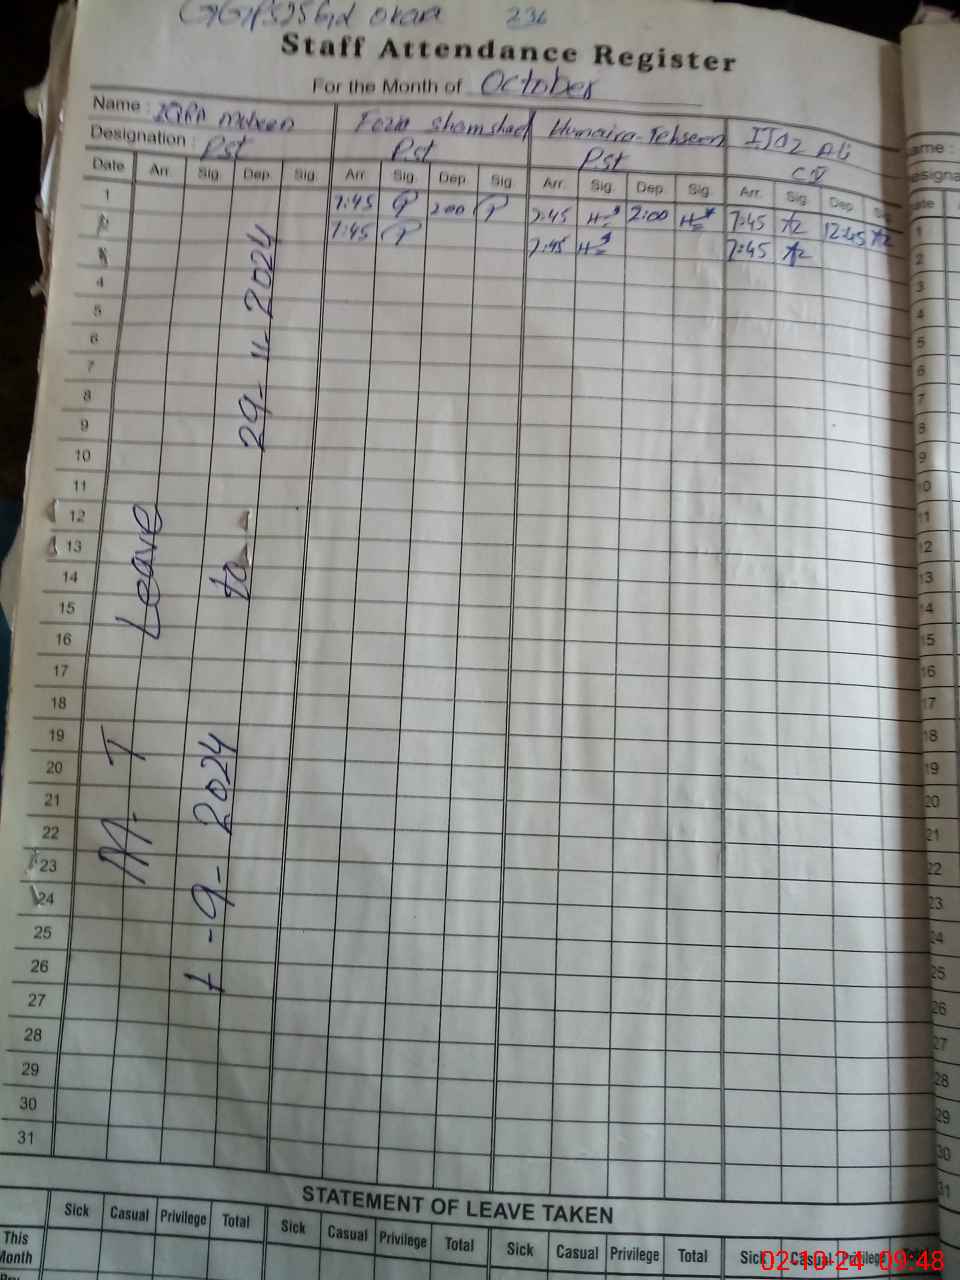 236
Staff Attendance Register
For the Month of October
Name : IQRA Fozia Shamshad Humaira Tehseen IJAZ Ali
Designation : Pst Pst Pst
Date Arr. Sig. Dep. Sig. Arr. Sig. Dep. Sig. Arr. Sig. Dep. Sig. Arr. Sig. Dep.
1 7:45 200 7:45 2:00 7:45 12:45
7:45 7:45 7:45
4
5
6
7
8
9
10
11
12
13
14
15
16
17
18
19
20
21
22
23
24
25
26
27
28
29
30
31
M. T Leave
1-9-2024 to 29-11-2024
STATEMENT OF LEAVE TAKEN
Sick Casual Privilege Total Sick Casual Privilege Total Sick Casual Privilege Total Sick Casual Privilege
This
Month
ame :
1
2
3
4
5
6
7
8
9
10
11
12
13
14
15
16
17
18
19
20
21
22
23
24
25
26
27
28
29
30
31
02-10-24 09:48